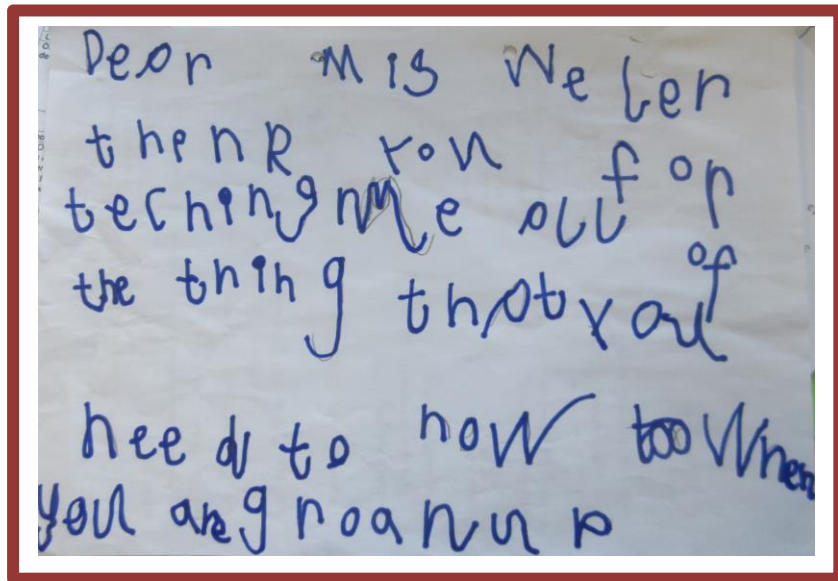 Dear Mis Weler
thenk you for
teching me all of
the thing that you
need to now too When
you are groanup